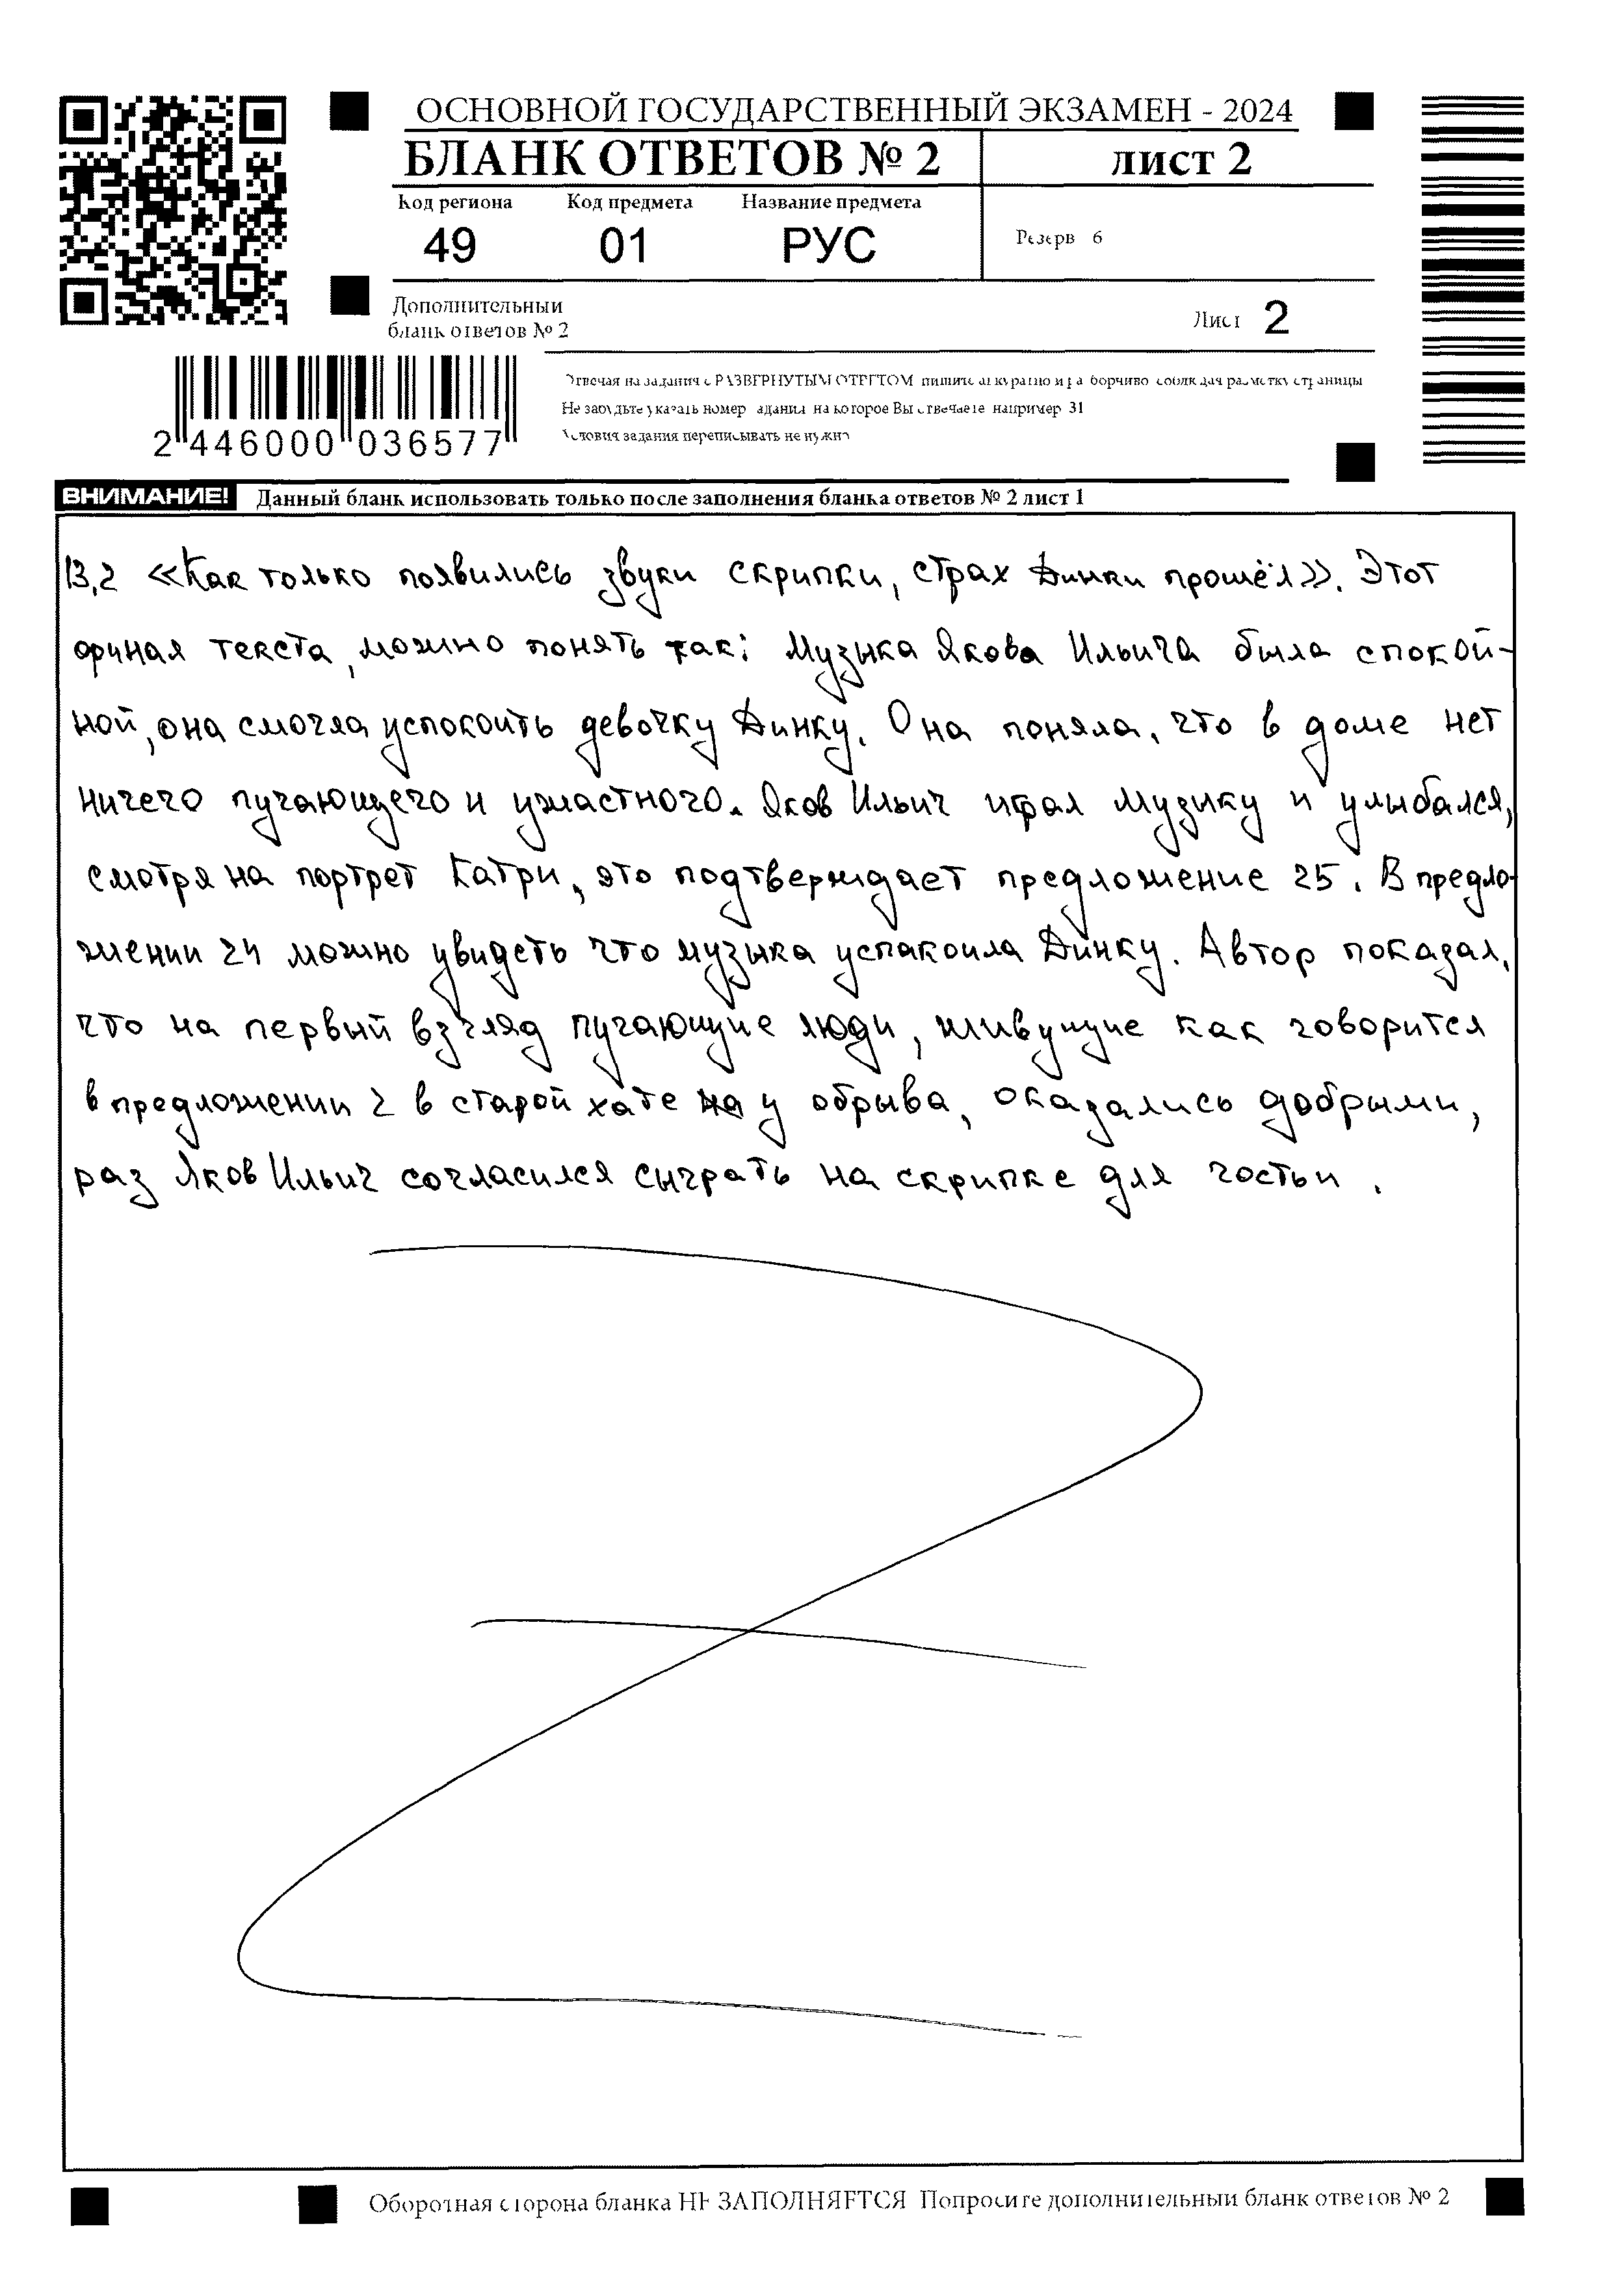 ОСНОВНОЙ ГОСУДАРСТВЕННЫЙ ЭКЗАМЕН - 2024
БЛАНК ОТВЕТОВ № 2
лист 2
Код региона Код предмета Название предмета
49 01 РУС
Резерв 6
Дополнительный
бланк ответов № 2
Лист 2
Отвечая на задания с РАЗВЕРНУТЫМ ОТВЕТОМ пишите аккуратно и разборчиво соблюдая разметку страницы
Не забудьте указать номер задания на которое Вы отвечаете например 31
Условия задания переписывать не нужно
2 446000 036577
ВНИМАНИЕ! Данный бланк использовать только после заполнения бланка ответов № 2 лист 1
13,2 «Как только появились звуки скрипки, страх Динки прошёл». Этот
финал текста, можно понять так: Музыка Якова Ильича была спокой-
ной, она смогла успокоить девочку Динку. Она поняла, что в доме нет
ничего пугающего и ужастного. Яков Ильич играл музыку и улыбался,
смотря на портрет Катри, это подтверждает предложение 25. В предло-
жении 24 можно увидеть что музыка успакоила Динку. Автор показал,
что на первый взгляд пугающие люди, живущие как говорится
в предложении 2 в старой хате у обрыва, оказались добрыми,
раз Яков Ильич согласился сыграть на скрипке для гостьи.
Оборотная сторона бланка НЕ ЗАПОЛНЯЕТСЯ Попросите дополнительный бланк ответов № 2